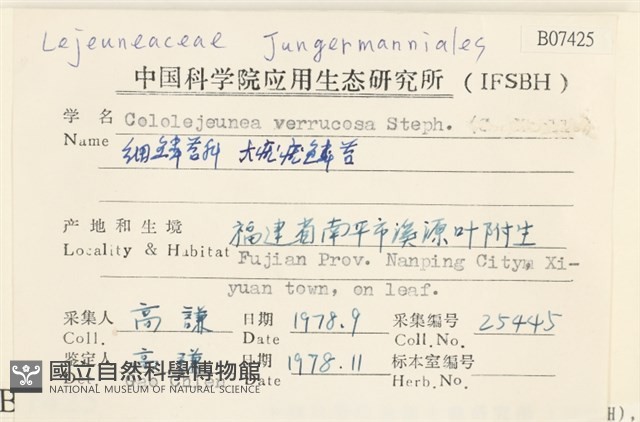 Lejeuneaceae Jungermanniales
B07425
中国科学院应用生态研究所 (IFSBH)
学名 Cololejeunea verrucosa Steph.
Name 细鳞苔科 大疣疣鳞苔
产地和生境 福建省南平市溪源叶附生
Locality & Habitat Fujian Prov. Nanping City, Xi-
yuan town, on leaf.
采集人 高謙 日期 1978.9 采集编号 25445
Coll. Date Coll.No.
鉴定人 高謙 日期 1978.11 标本室编号
Det. Gao Chien Date Herb.No.
國立自然科學博物館
NATIONAL MUSEUM OF NATURAL SCIENCE